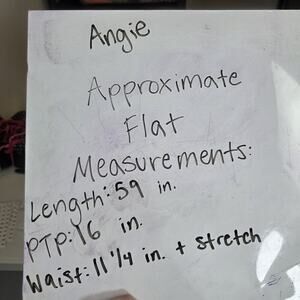 Angie
Approximate
Flat
Measurements:
Length: 59 in.
PTP: 16 in.
Waist: 11 1/4 in. + stretch